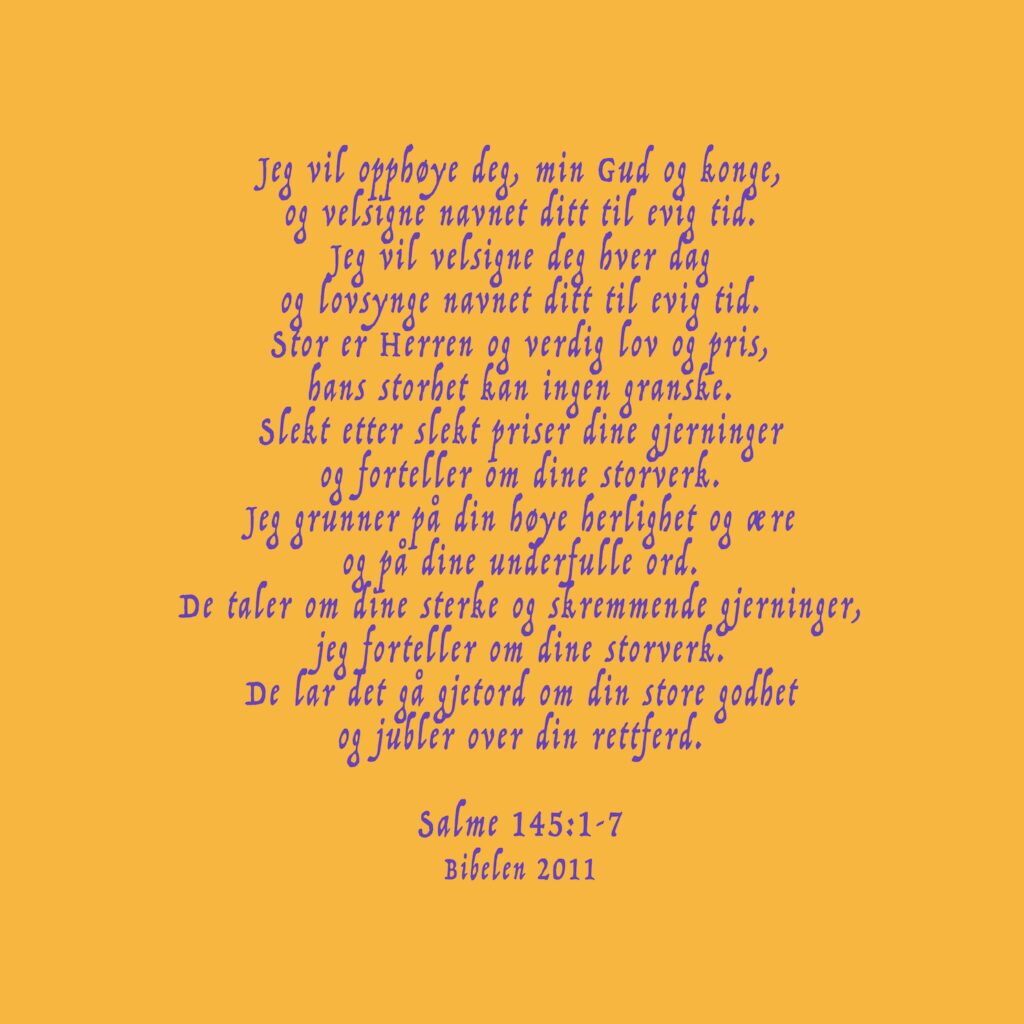 Jeg vil opphøye deg, min Gud og konge,
og velsigne navnet ditt til evig tid.
Jeg vil velsigne deg hver dag
og lovsynge navnet ditt til evig tid.
Stor er Herren og verdig lov og pris,
hans storhet kan ingen granske.
Slekt etter slekt priser dine gjerninger
og forteller om dine storverk.
Jeg grunner på din høye herlighet og ære
og på dine underfulle ord.
De taler om dine sterke og skremmende gjerninger,
jeg forteller om dine storverk.
De lar det gå gjetord om din store godhet
og jubler over din rettferd.
Salme 145:1-7
Bibelen 2011